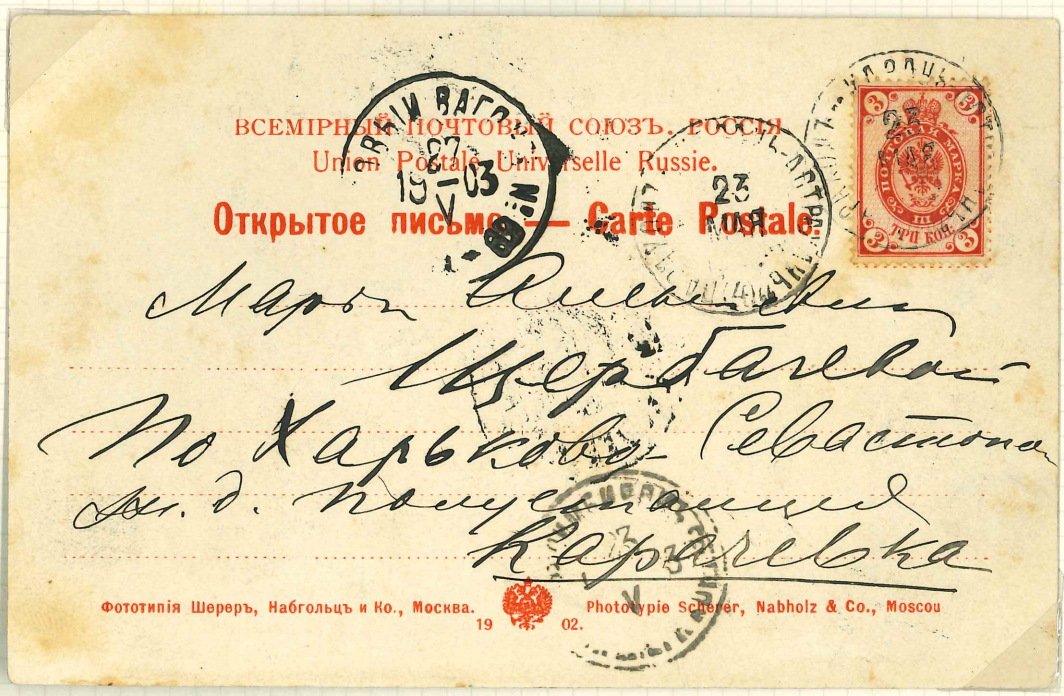 ВСЕМІРНЫЙ ПОЧТОВЫЙ СОЮЗЪ. РОССІЯ
Union Postale Universelle Russie.
Открытое письмо — Carte Postale.
27
19-03
V
23
МАЯ
23
МАЯ
3 3
ПОЧТОВАЯ МАРКА
III
ТРИ КОП.
3 3
Марьи
Щербачевой
По Харьково Севастопол
ж. д. полустанція
Карачевка
3
V
Фототипія Шереръ, Набгольцъ и Ко., Москва.
Photot​ypie Scherer, Nabholz & Co., Moscou
19 02.